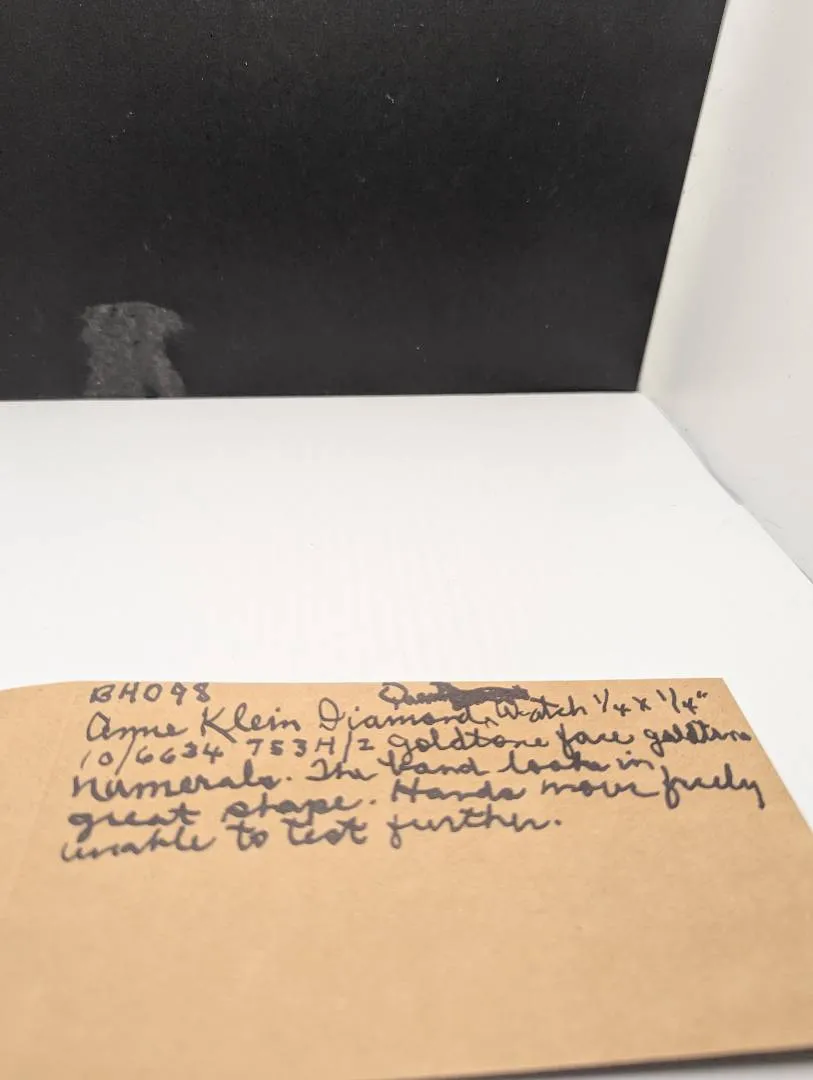 BH098
Anne Klein Diamond Watch 1/4 x 1/4"
10/6634 753H/2 goldtone face goldtone
numerals. The band looks in
great shape. Hands move freely
unable to test further.